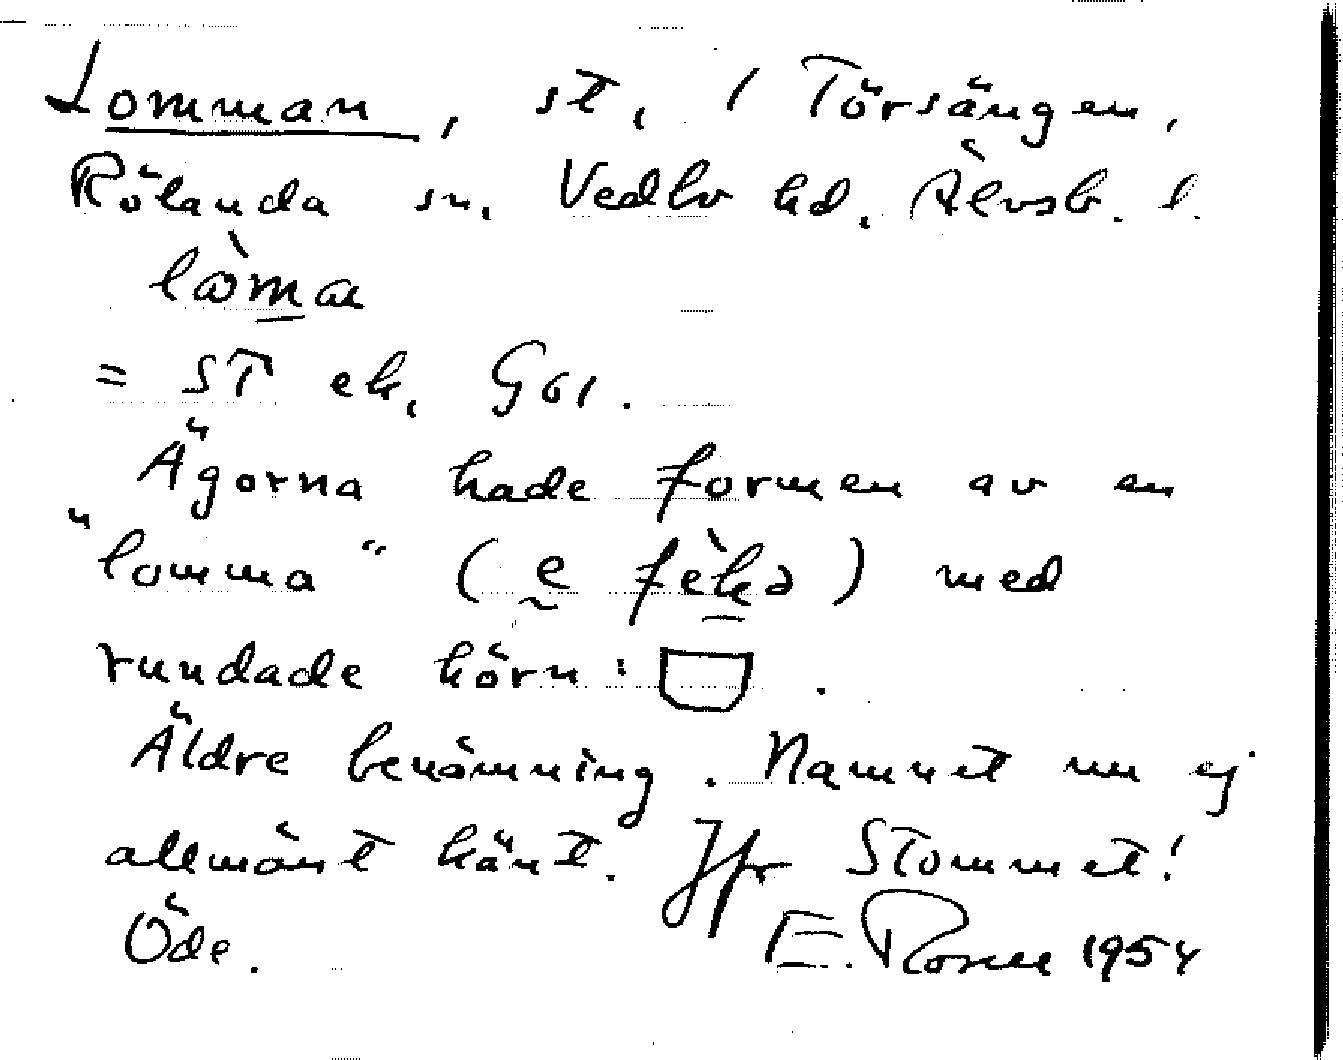 Lomman, st, / Törsängen,
Rölanda sn, Vedbo hd, Älvsb. l.
lòma
= ST ek.
Ägorna hade formen av en
"lomma" (e fèkə) med
rundade hörn: .
Äldre benämning. Namnet nu ej
allmänt känt. Jfr Stommet!
Öde. E. Rosell 1954